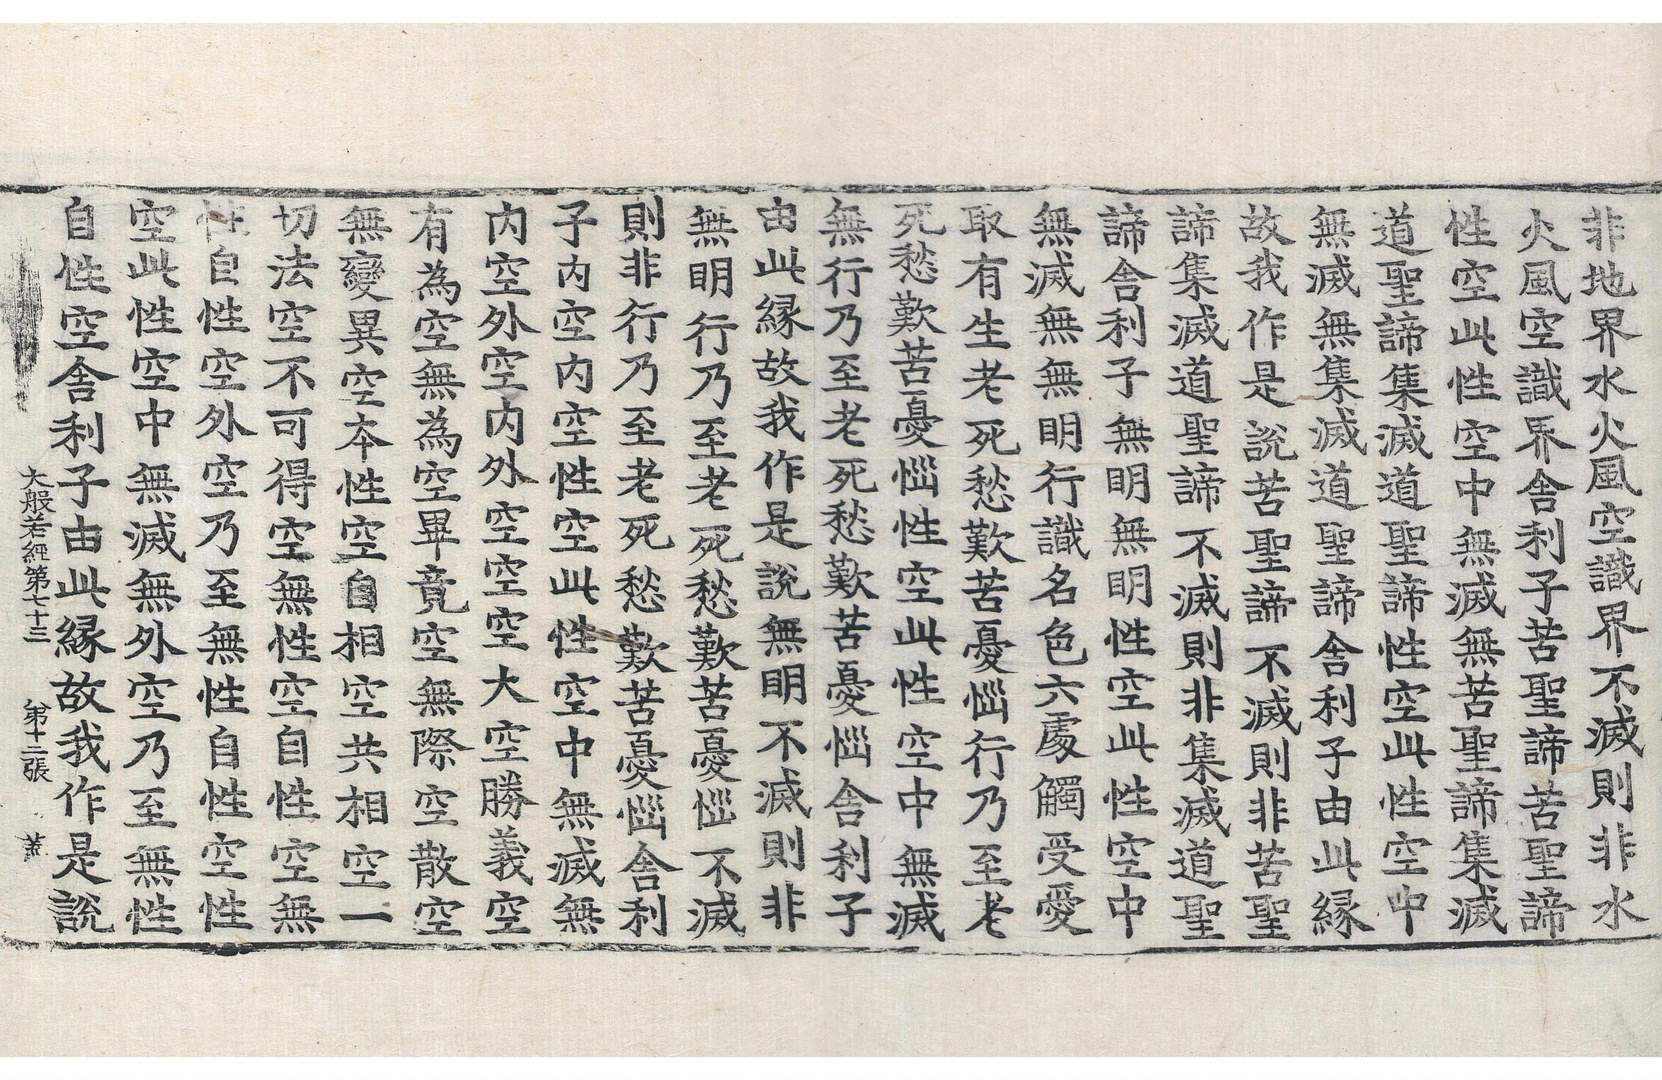 非地界水火風空識界不滅則非水
火風空識界舍利子苦聖諦苦聖諦
性空此性空中無滅無苦聖諦集滅
道聖諦集滅道聖諦性空此性空中
無滅無集滅道聖諦舍利子由此縁
故我作是說苦聖諦不滅則非苦聖
諦集滅道聖諦不滅則非集滅道聖
諦舍利子無眀無眀性空此性空中
無滅無無眀行識名色六處觸受愛
取有生老死愁歎苦憂惱行乃至老
死愁歎苦憂惱性空此性空中無滅
無行乃至老死愁歎苦憂惱舍利子
由此縁故我作是說無眀不滅則非
無眀行乃至老死愁歎苦憂惱不滅
則非行乃至老死愁歎苦憂惱舍利
子内空内空性空此性空中無滅無
内空外空内外空空空大空勝義空
有為空無為空畢竟空無際空散空
無變異空本性空自相空共相空一
切法空不可得空無性空自性空無
性自性空外空乃至無性自性空性
空此性空中無滅無外空乃至無性
自性空舍利子由此縁故我作是說
大般若經第七十三 第十二張